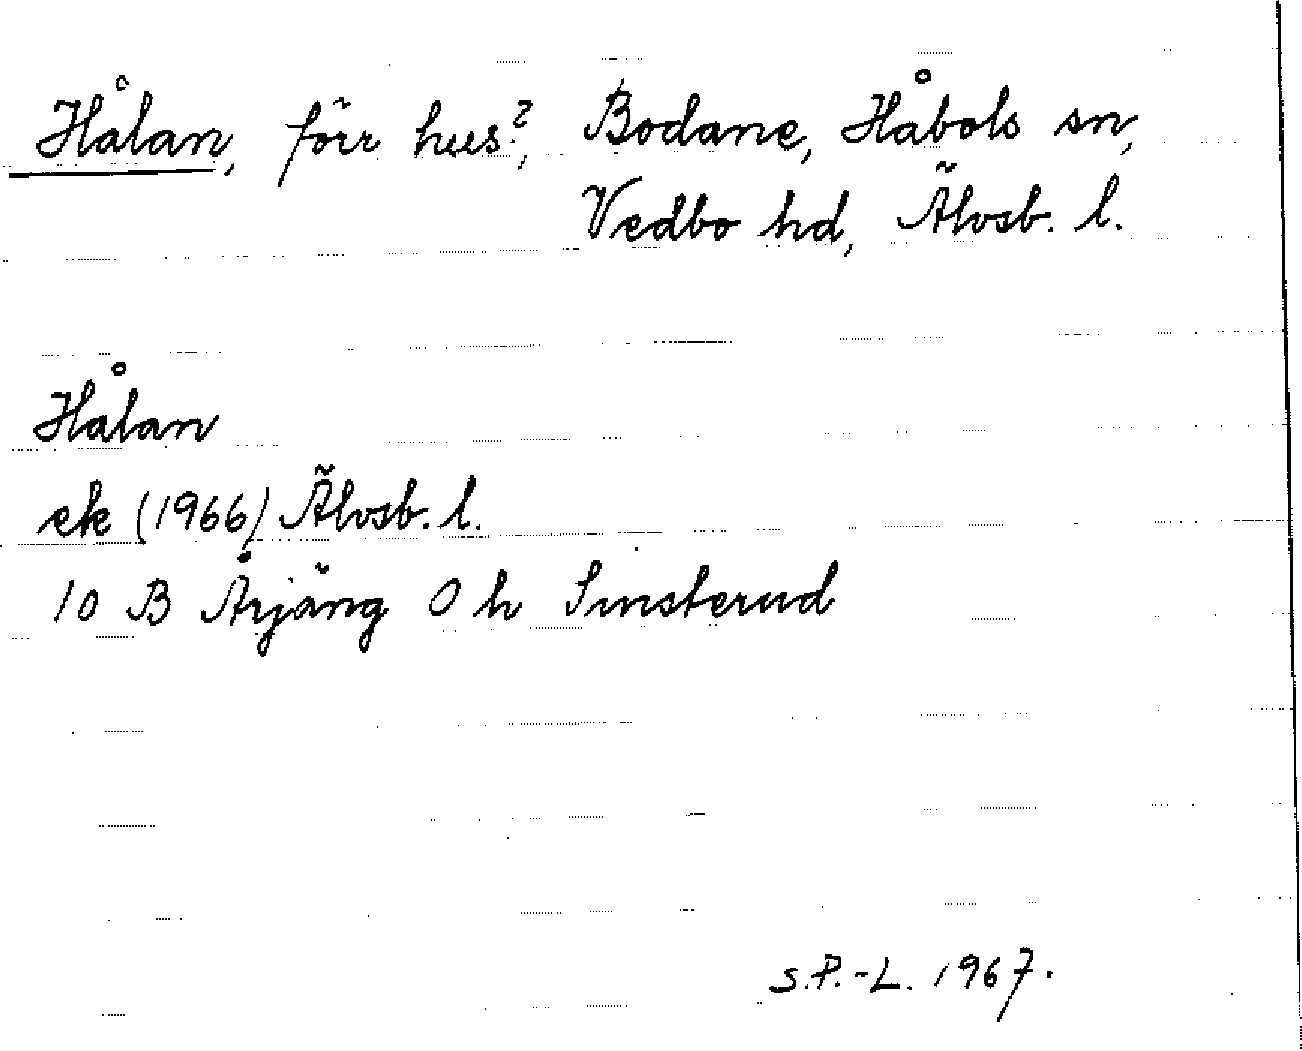 Hålan, förr hus?, Bodane, Håbols sn,
Vedbo hd, Älvsb. l.
Hålan
ek (1966) Älvsb. l.
10 B Årjäng 0 h Sinsterud
S.P.-L. 1967.